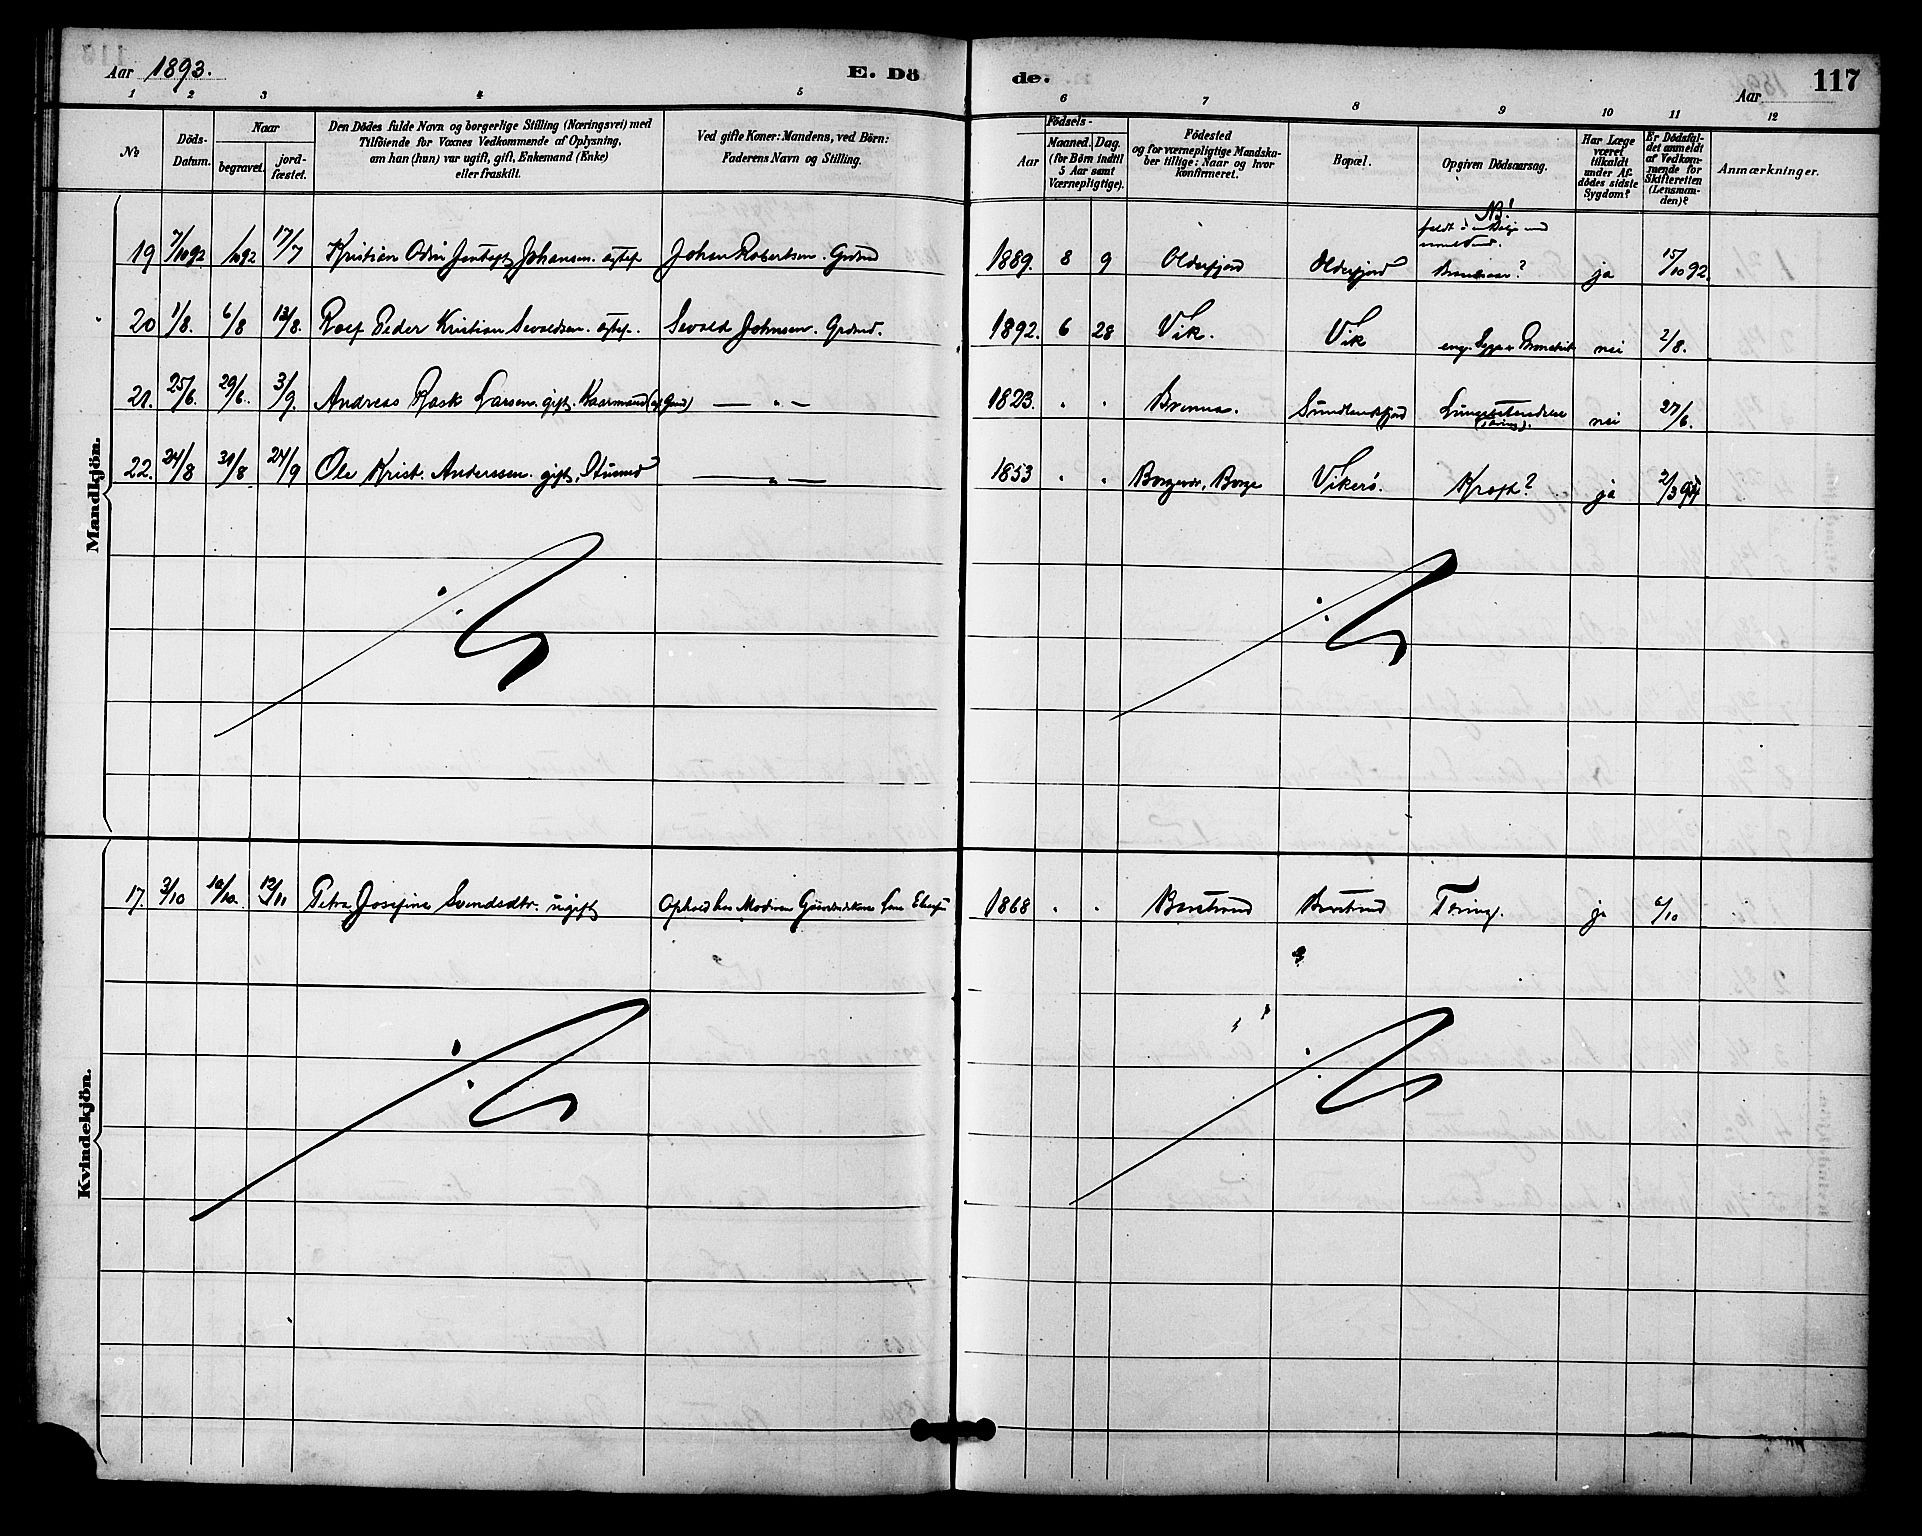 Aar 1893.
E. Dö
de.
Aar
117
1 2 3 4 5 6 7 8 9 10 11 12
№
Döds-
Datum.
Naar
begravet.
jord-
fæstet.
Den Dödes fulde Navn og borgerlige Stilling (Næringsvei) med
Tilföiende for Voxnes Vedkommende af Oplysning,
om han (hun) var ugift, gift, Enkemand (Enke)
eller fraskilt.
Ved gifte Koner: Mandens, ved Börn:
Faderens Navn og Stilling.
Födsels-
Aar
Maaned.
Dag.
(for Börn indtil
5 Aar samt
Værnepligtige).
Födested
og for værnepligtige Mandska-
ber tillige: Naar og hvor
konfirmeret.
Bopæl.
Opgiven Dödsaarsag.
Har Læge
været
tilkaldt
under Af-
dödes sidste
Sygdom?
Er Dödsfal-
det anmeldt
af Vedkom-
mende for
Skifteretten
(Lensman-
den)?
Anmærkninger.
Mandkjön.
NB!
19 7/10 92 /10 92 17/7 Kristian Odin Johansen. Johan Robertsen. 1889. 8 9 Olderfjord Olderfjord ja 15/10 92.
20 1/8. 6/8 13/8. Peder Kristian Sevaldsen. Sevald Johnsen. 1892. 6 28 Vik. Vik nei 2/8.
21. 25/6. 29/6. 3/9. Andreas Rask Larsen. gift. Kaarmand — " — 1823. " " Sundlandsfjord nei 27/6.
22. 24/8 31/8 24/9 Ole Krist. Anderssen. gift, — " — 1853 " " Borgevær, Borge Vikerö. Kræft? ja 2/3 94
Kvindekjön.
17. 3/10 10/10. 12/11 Petra Josefine Svendsdtr. ugift Ophold hos Modren 1868 " " Tæring. ja 6/10